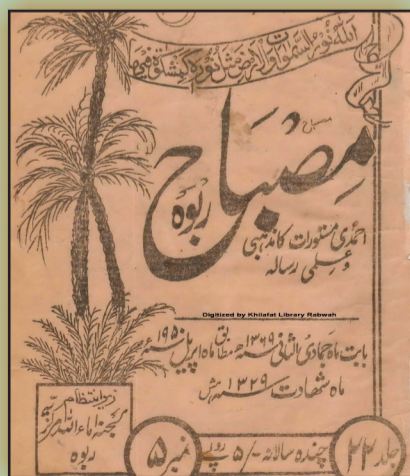 اللہ نور السموات والارض مثل نورہ کمشکوٰۃ فیھا
مصباح
مصباح
ربوہ
احمدی مستورات کا مذہبی
و علمی رسالہ
Digitized by Khilafat Library Rabwah
بابت ماہ جمادی الثانی سنہ ۱۳۶۹ھ مطابق ماہ اپریل سنہ ۱۹۵۰ء
ماہ شہادت سنہ ۱۳۲۹ ہش
زیر انتظام
لجنہ اماء اللہ مرکزیہ
ربوہ
جلد ۲۲
چندہ سالانہ -/۵ روپے
نمبر ۵